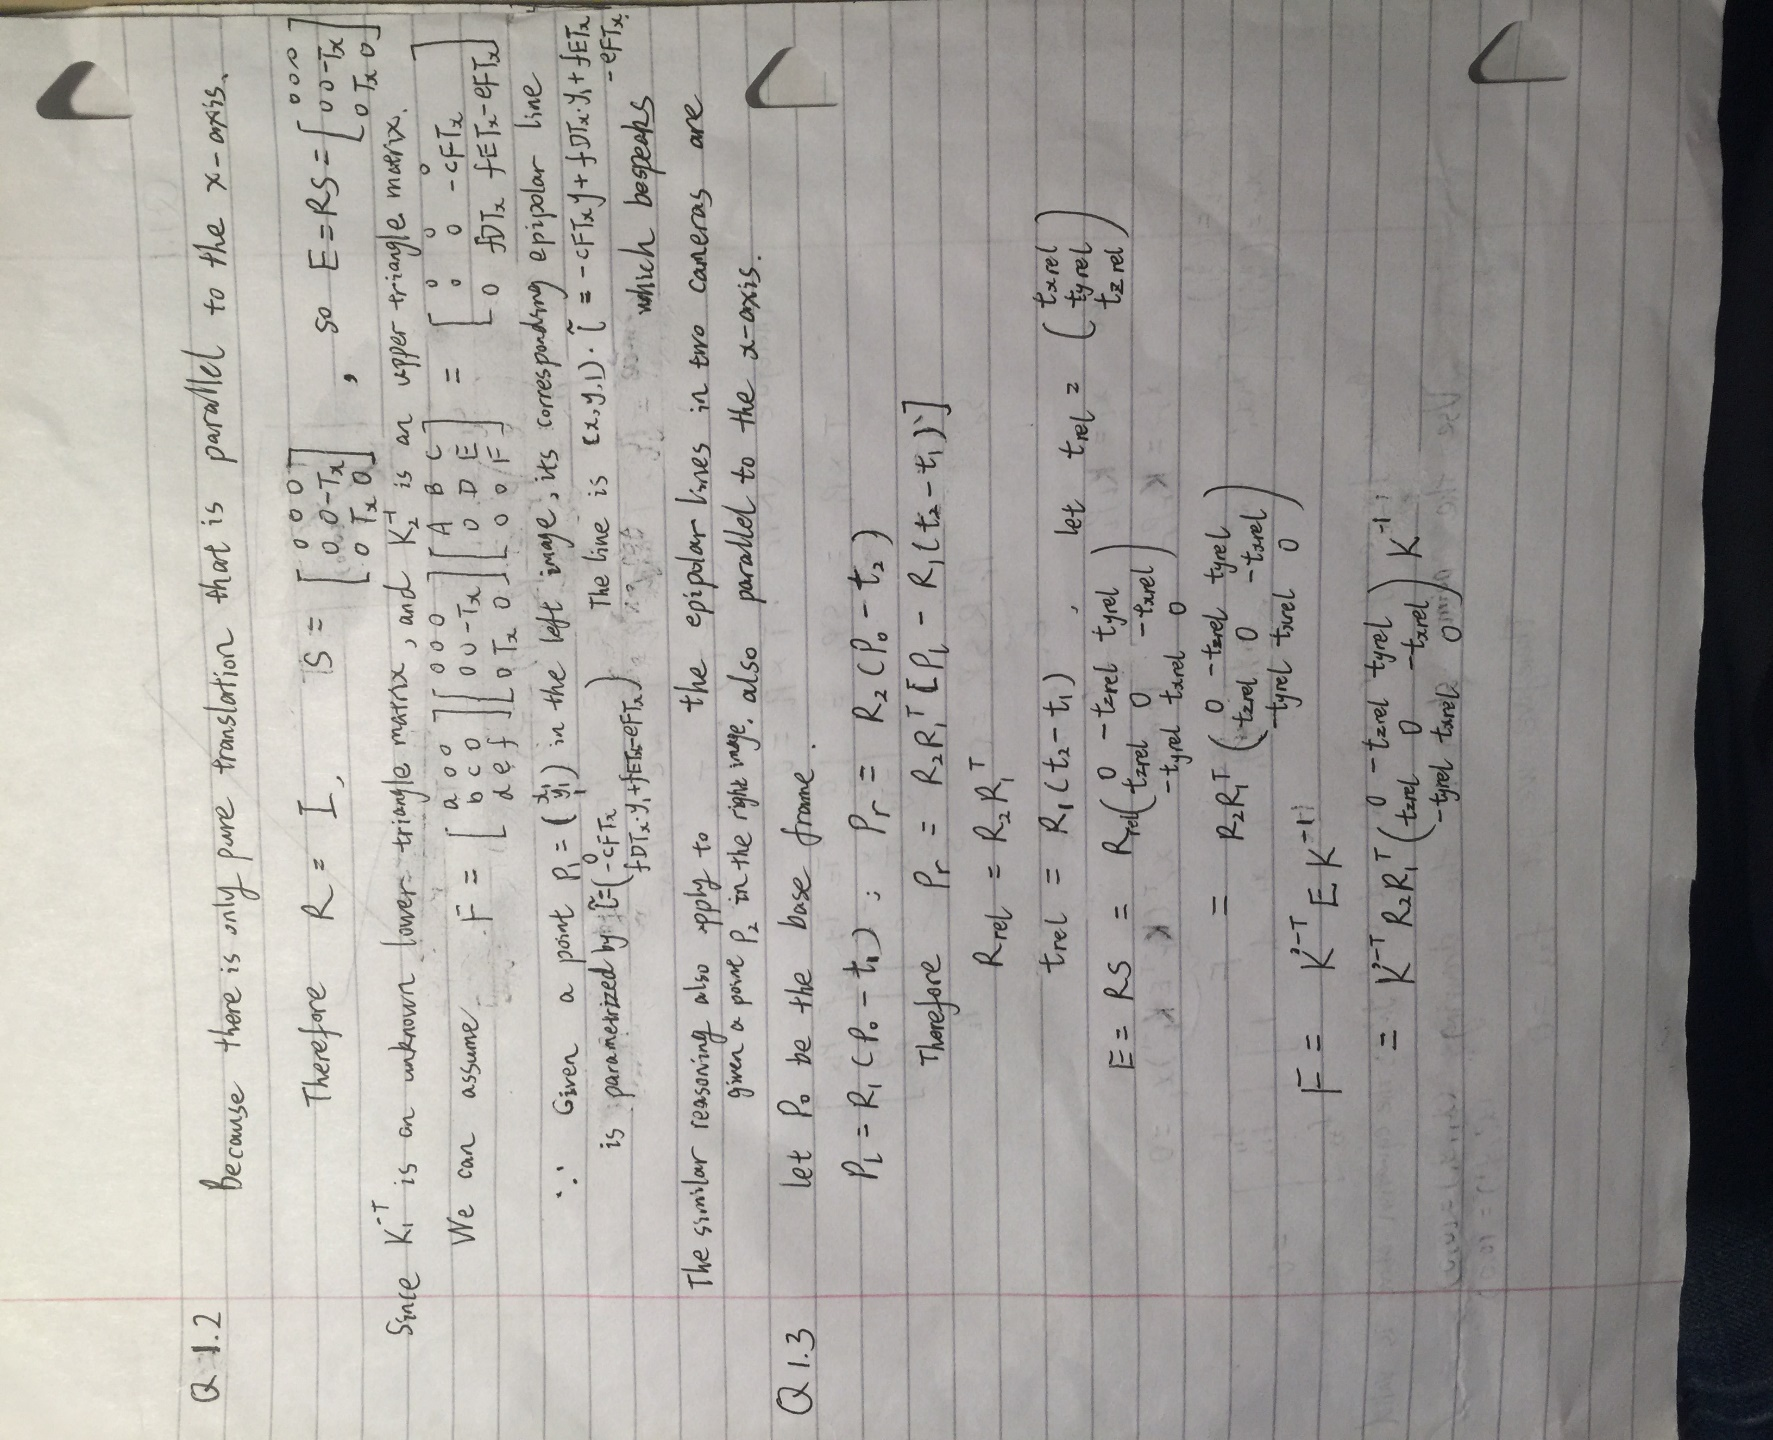 Q 1.2 Because there is only pure translation that is parallel to the x-axis.
Therefore R = I, S = [0 0 0; 0 0 -Tx; 0 Tx 0], so E = RS = [0 0 0; 0 0 -Tx; 0 Tx 0]
Since K₁^-T is an unknown lower-triangle matrix, and K₂^-1 is an upper triangle matrix.
We can assume F = [a 0 0; b c 0; d e f] [0 0 0; 0 0 -Tx; 0 Tx 0] [A B C; 0 D E; 0 0 F] = [0 0 0; 0 0 -cFTx; 0 fDTx fETx-eFTx]
∵ Given a point P₁ = (x₁ y₁ 1) in the left image, its corresponding epipolar line
is parametrized by l̃ = (0 -cFTx fDTx·y₁+fETx-eFTx) The line is (x,y,1)·l̃ = -cFTx y + fDTx·y₁ + fETx - eFTx,
which bespeaks
The similar reasoning also apply to the epipolar lines in two cameras are
given a point P₂ in the right image. also parallel to the x-axis.
Q 1.3 let P₀ be the base frame.
P_L = R₁(P₀ - t₁) ; P_r = R₂(P₀ - t₂)
Therefore P_r = R₂R₁^T [P_L - R₁(t₂ - t₁)]
R_rel = R₂R₁^T
t_rel = R₁(t₂ - t₁), let t_rel = (t_xrel t_yrel t_zrel)
E = RS = R_rel (0 -t_zrel t_yrel; t_zrel 0 -t_xrel; -t_yrel t_xrel 0)
= R₂R₁^T (0 -t_zrel t_yrel; t_zrel 0 -t_xrel; -t_yrel t_xrel 0)
F = K'^-T E K^-1
= K'^-T R₂R₁^T (0 -t_zrel t_yrel; t_zrel 0 -t_xrel; -t_yrel t_xrel 0) K^-1